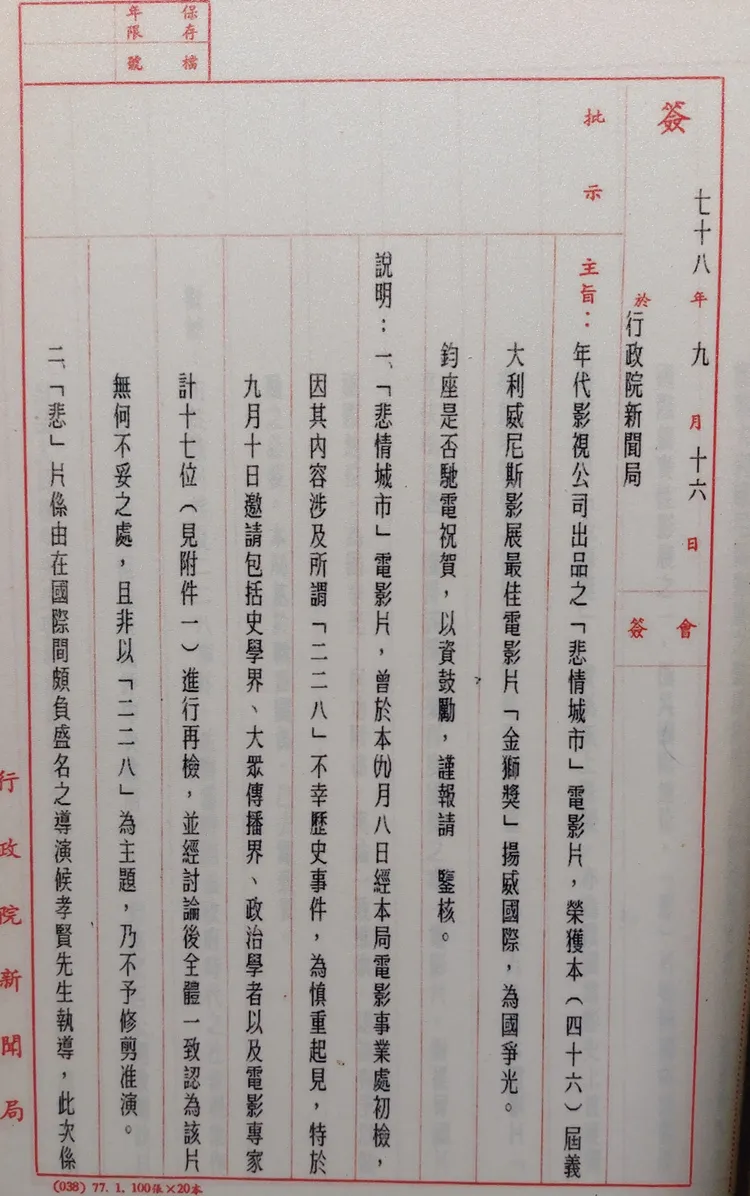 保存年限
檔號
簽
七十八年九月十六日
於行政院新聞局
會簽
批示
主旨：年代影視公司出品之「悲情城市」電影片，榮獲本（四十六）屆義
大利威尼斯影展最佳電影片「金獅獎」揚威國際，為國爭光。
鈞座是否馳電祝賀，以資鼓勵，謹報請　鑒核。
說明：一、「悲情城市」電影片，曾於本(九)月八日經本局電影事業處初檢，
因其內容涉及所謂「二二八」不幸歷史事件，為慎重起見，特於
九月十日邀請包括史學界、大眾傳播界、政治學者以及電影專家
計十七位（見附件一）進行再檢，並經討論後全體一致認為該片
無何不妥之處，且非以「二二八」為主題，乃不予修剪准演。
二、「悲」片係由在國際間頗負盛名之導演候孝賢先生執導，此次係
行政院新聞局
(038) 77. 1. 100張×20本